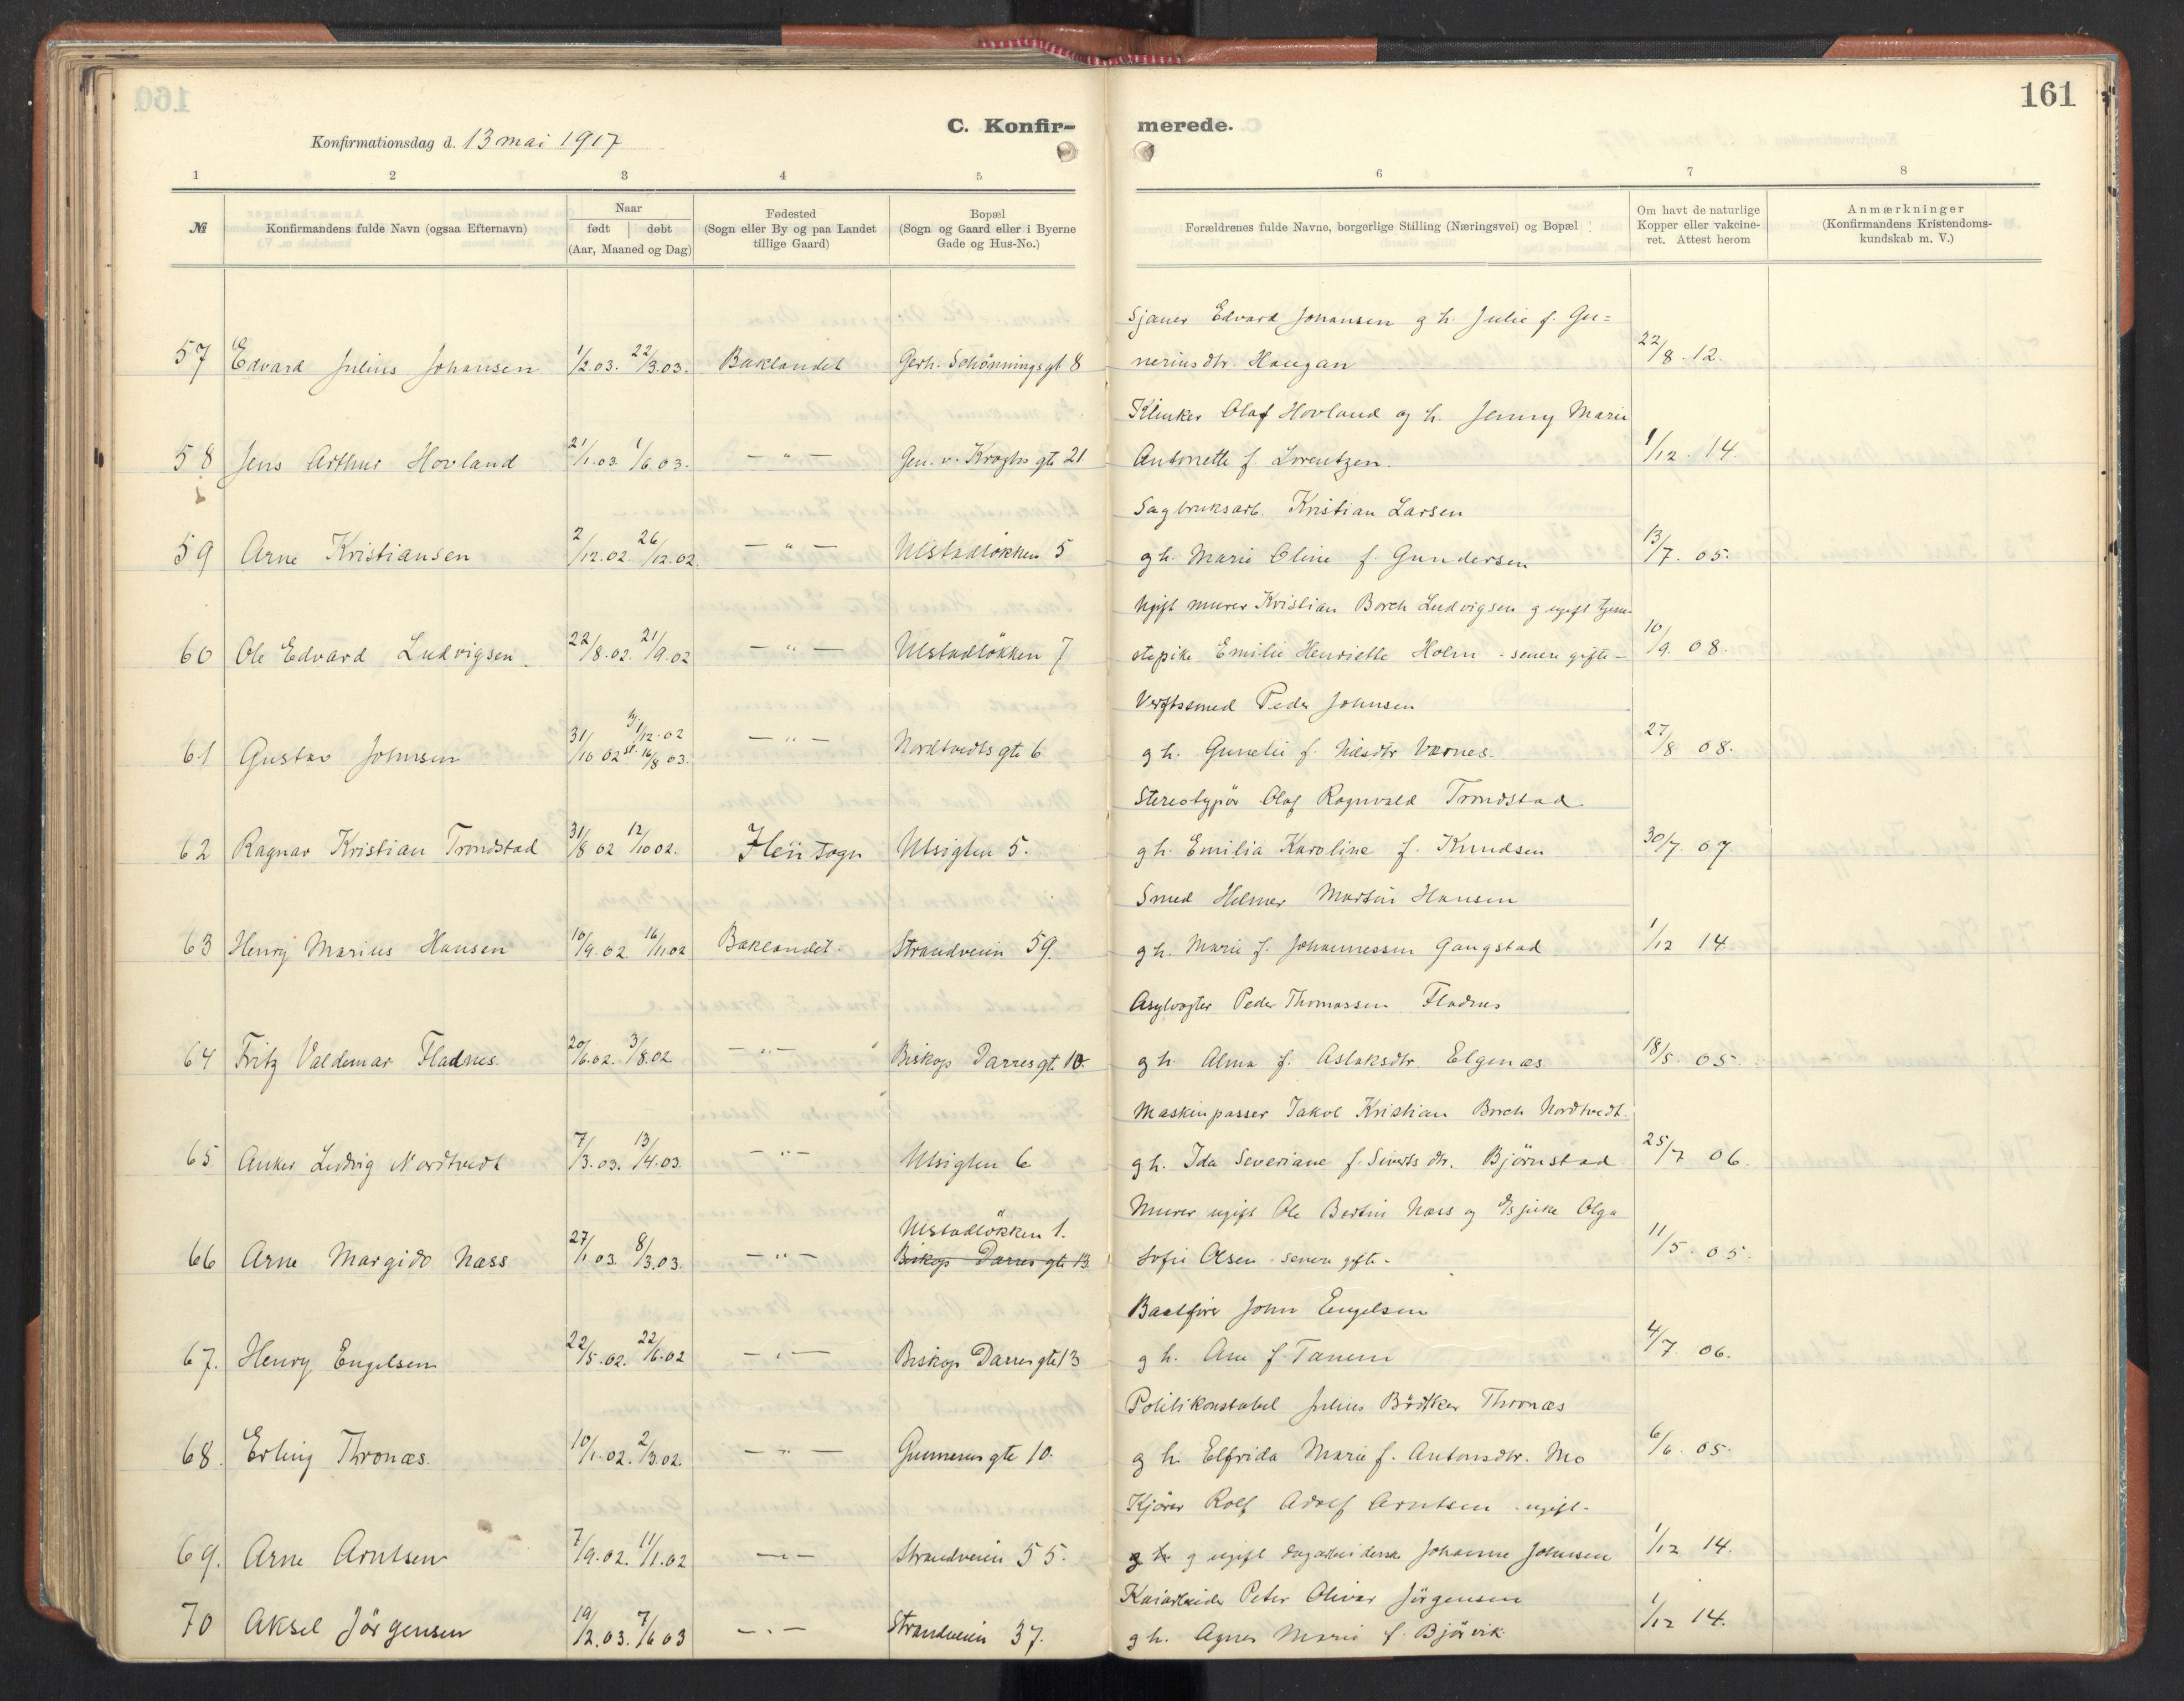 161
C. Konfir- merede.
Konfirmationsdag d. 13 mai 1917
1 2 3 4 5 6 7 8
№
Konfirmandens fulde Navn (ogsaa Efternavn)
Naar
født døbt
(Aar, Maaned og Dag)
Fødested
(Sogn eller By og paa Landet
tillige Gaard)
Bopæl
(Sogn og Gaard eller i Byerne
Gade og Hus-No.)
Forældrenes fulde Navne, borgerlige Stilling (Næringsvei) og Bopæl
Om havt de naturlige
Kopper eller vakcine-
ret. Attest herom
Anmærkninger
(Konfirmandens Kristendoms-
kundskab m. V.)
Sjauer Edvard Johansen g h. Julie f. Gu=
57 Edvard Julius Johansen 1/2.03. 22/3.03. Baklandet Gerh. Schönningsgt 8 neriusdtr. Haugan 22/8.12.
Klinker Olaf Hovland og h. Jenny Marie
58 Jens Arthur Hovland 21/1.03. 1/6.03. — " — Gen. v. Kroghs gt. 21 Antonette f. Lorentzen. 1/12. 14.
Sagbruksarb. Kristian Larsen
59 Arne Kristiansen 2/12.02. 26/12.02. — " — Ulstadløkken 5 g h. Marie Oline f. Gundersen 13/7. 05.
Ugift murer Kristian Borch Ludvigsen g ugift tjene-
60 Ole Edvard Ludvigsen. 22/8.02. 21/9.02 — " — Ulstadløkken 7 stepike Emilie Henriette Holm - senere gifte - 10/9. 08.
Verftssmed Peder Johnsen
61 Gustav Johnsen 31/10 02 31/12.02 st. 16/8 03. — " — Nordtvedts gt. 6 g h. Gunelie f. Nilsdtr Værnes. 27/8 08.
Stereotypör Olaf Ragnvald Trondstad
62 Ragnar Kristian Trondstad 31/8 02 12/10 02. sogn Utsigten 5. g h. Emilia Karoline f. Knudsen 30/7. 07.
Smed Helmer Martin Hansen
63 Henry Marius Hansen 10/9.02. 16/11.02 Baklandet. Strandveien 59. g h. Marie f. Johannessen Gangstad 1/12 14.
Asylvogter Peder Thomassen Fladnes
64 Fritz Valdemar Fladnes. 20/6.02. 3/8.02 — " — Biskop Darres gt. 10. g h. Alma f. Aslaksdtr. Elgenæs 18/5. 05.
Maskinpasser Jakob Kristian Borch Nordtvedt.
65 Anker Ludvig Nordtvedt 7/3.03. 13/4.03. — " — Utsigten 6 g h. Ida Severiane f. Siverts dtr. Björnstad 25/7 06.
Murer ugift Ole Bertin Næss og pike Olga
Ulstadløkken 1.
66 Arne Margido Næss 27/1 03. 8/3.03. — " — Biskop Darres gt. 13 Sofie Olsen - senere gifte - 11/5. 05.
Baatfører John Engelsen
67. Henry Engelsen 22/5.02. 22/6.02 — " — Biskop Darres gt. 13 g h. Ane f. Tanem 4/7. 06.
Politikonstabel Julius Bödtker Thronæs
68. Erling Thronæs. 10/1.02. 2/3.02. — " — Gunnerus gte 10. g h. Elfrida Marie f. Antonsdtr. Mo 6/6. 05.
Kjörer Rolf Adolf Arntsen - ugift -
69. Arne Arntsen 7/9.02. 11/1.02 — " — Strandveien 55. g h. g ugift dagarbeiderske Johanne Johnsen 1/12 14.
Kaiarbeider Peter Olivar Jörgensen
70 Aksel Jörgensen 19/2.03. 7/6 03 — " — Strandveien 37. g h. Agnes Marie f. Björvik. 1/12 14.